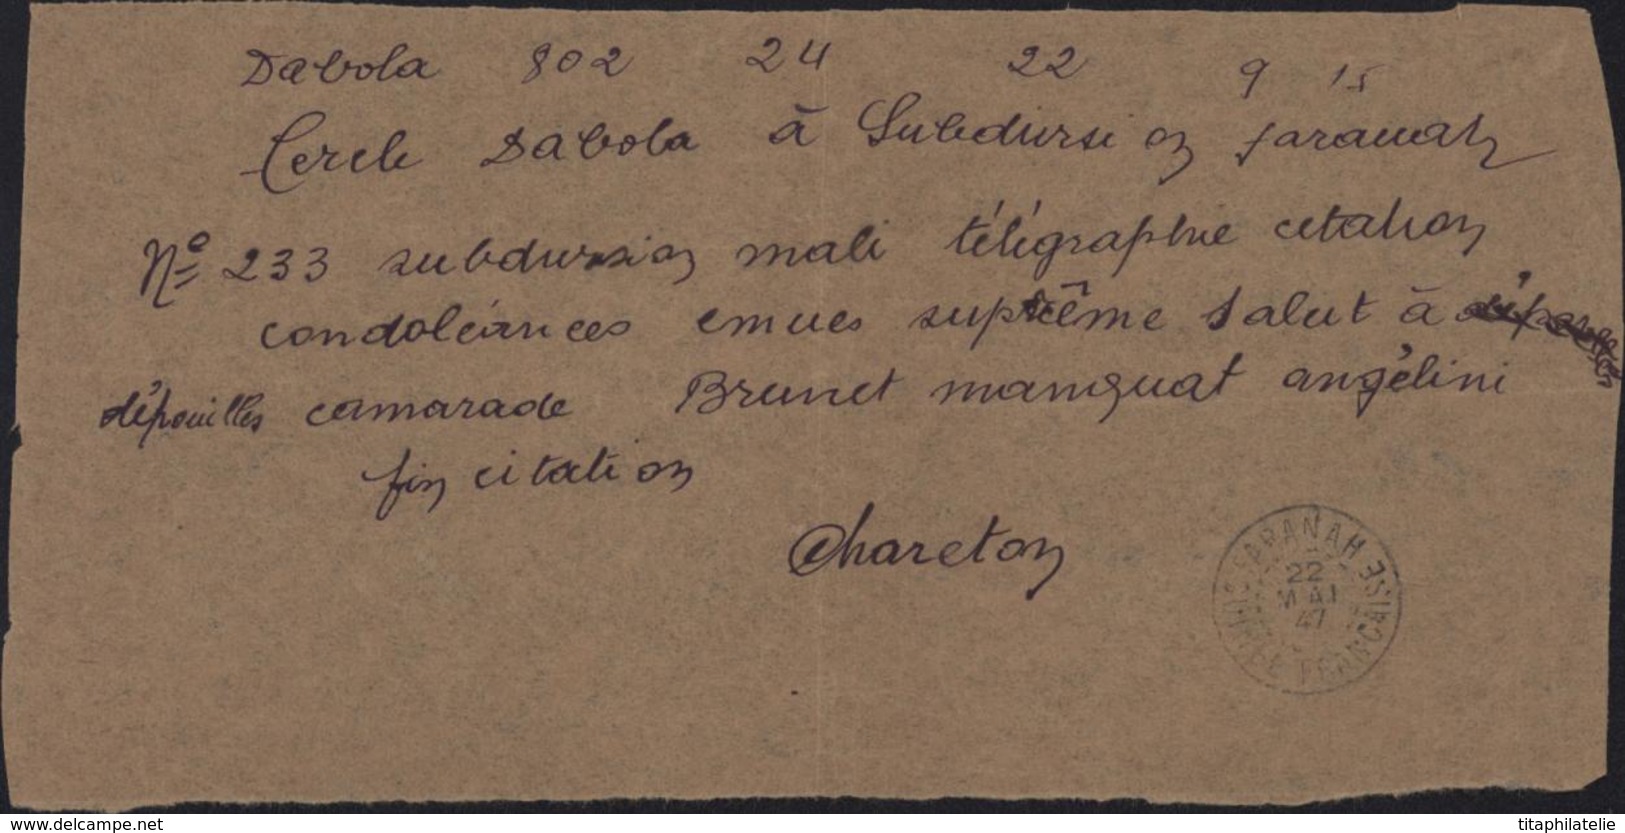 Dabola 802 24 22 9 15
Cercle Dabola à Subdivision faranah
Nº 233 subdivision mali télégraphie citation
condoléances emues suprême salut à
dépouilles camarade Brunet manquat angélini
fin citation
Chareton
FARANAH
22
MAI
47
GUINÉE FRANÇAISE
www.delcampe.net titaphilatelie